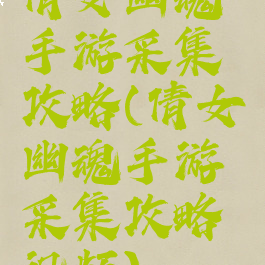 倩女幽魂
手游采集
攻略(倩女
幽魂手游
采集攻略
视频)